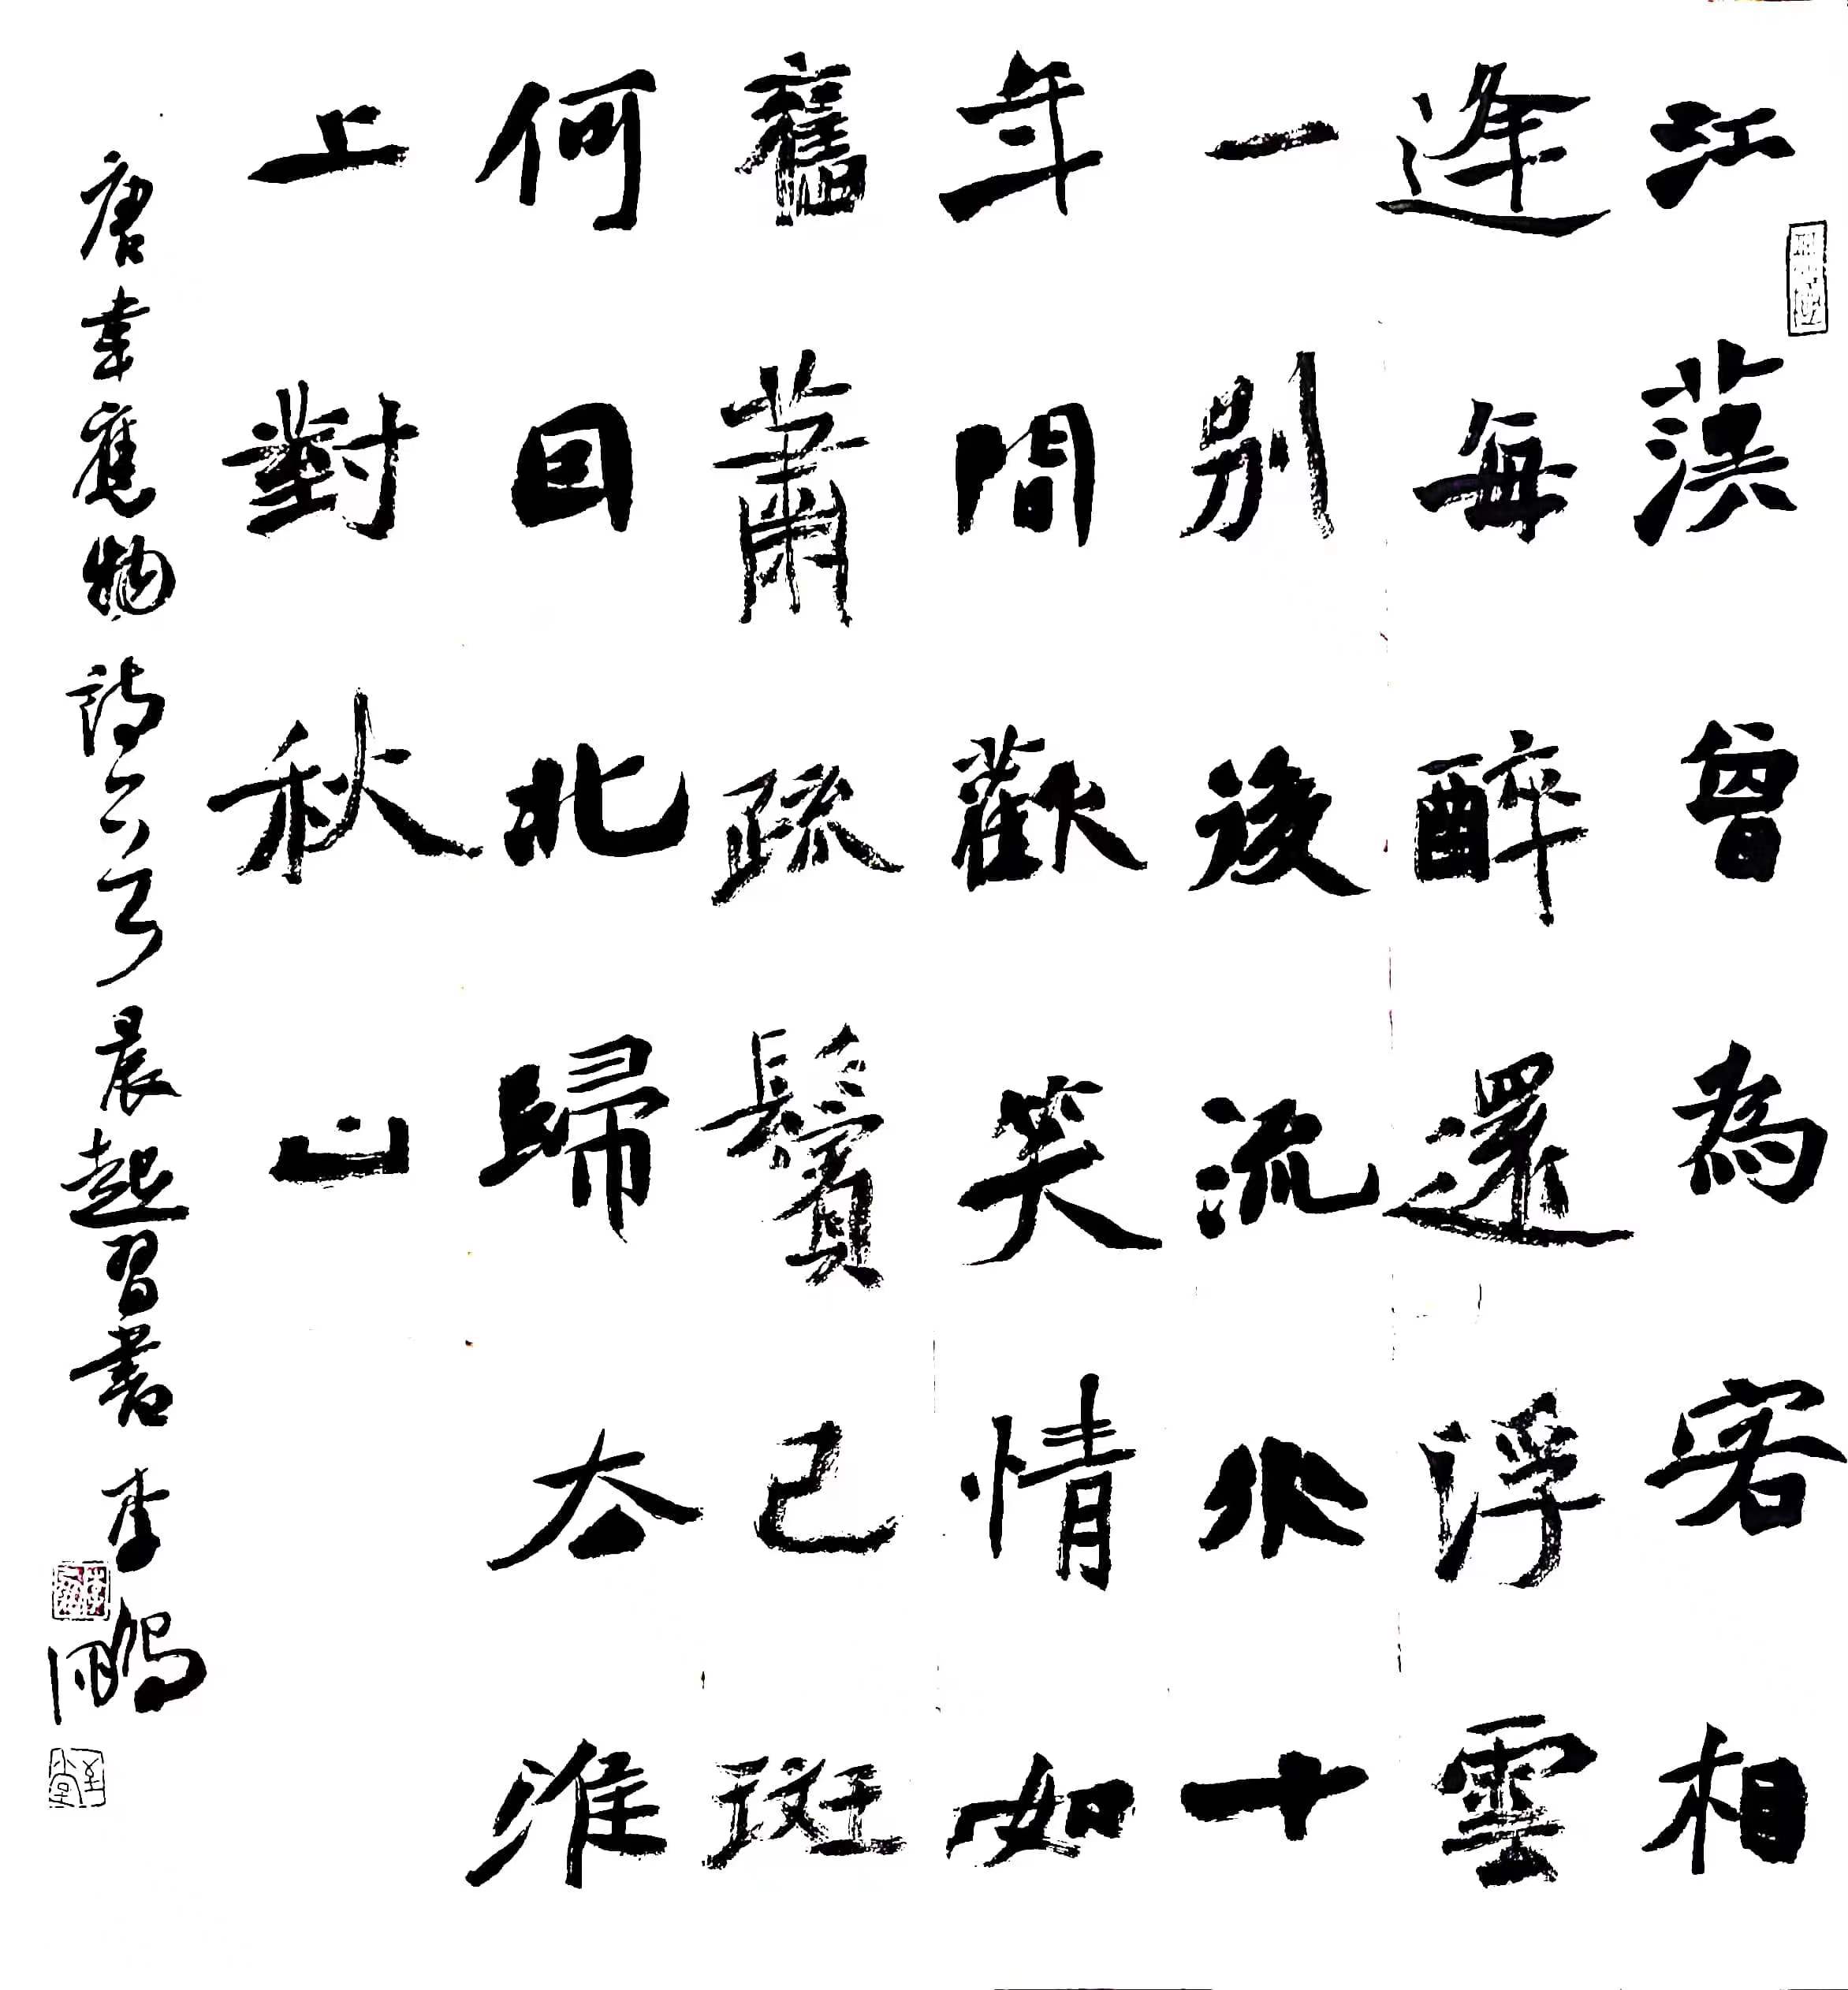 江漢曾為客相
逢每醉還浮雲
一別後流水十
年間歡笑情如
舊蕭疏鬢已斑
何因北歸去淮
上對秋山
唐韋應物詩一首晨起習書李鵬